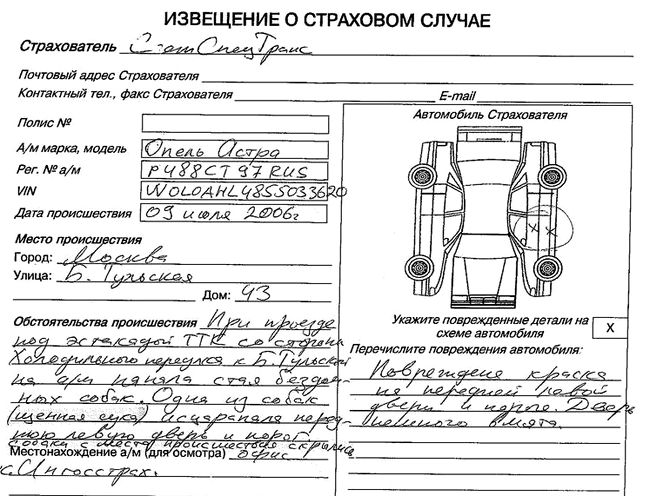 ИЗВЕЩЕНИЕ О СТРАХОВОМ СЛУЧАЕ
Страхователь СпецТранс
Почтовый адрес Страхователя
Контактный тел., факс Страхователя E-mail
Полис №
А/м марка, модель Опель Астра
Рег. № а/м Р488СТ97RUS
VIN WOLOAHL4855033620
Дата происшествия 09 июля 2006г
Место происшествия
Город: Москва
Улица: Б. Тульская
Дом: 43
Обстоятельства происшествия При проезде
под эстакадой ТТК со стороны
Холодильного переулка к Б. Тульской
на а/м напала стая бездом-
ных собак. Одна из собак
(щенная сука) исцарапала перед-
нюю левую дверь и порог.
Собаки с места происшествия скрылись
Местонахождение а/м (для осмотра) офис
с. Ингосстрах.
Автомобиль Страхователя
х х
Укажите поврежденные детали на
схеме автомобиля
X
Перечислите повреждения автомобиля:
Повреждена краска
на передней левой
двери и пороге. Дверь
немного вмята.